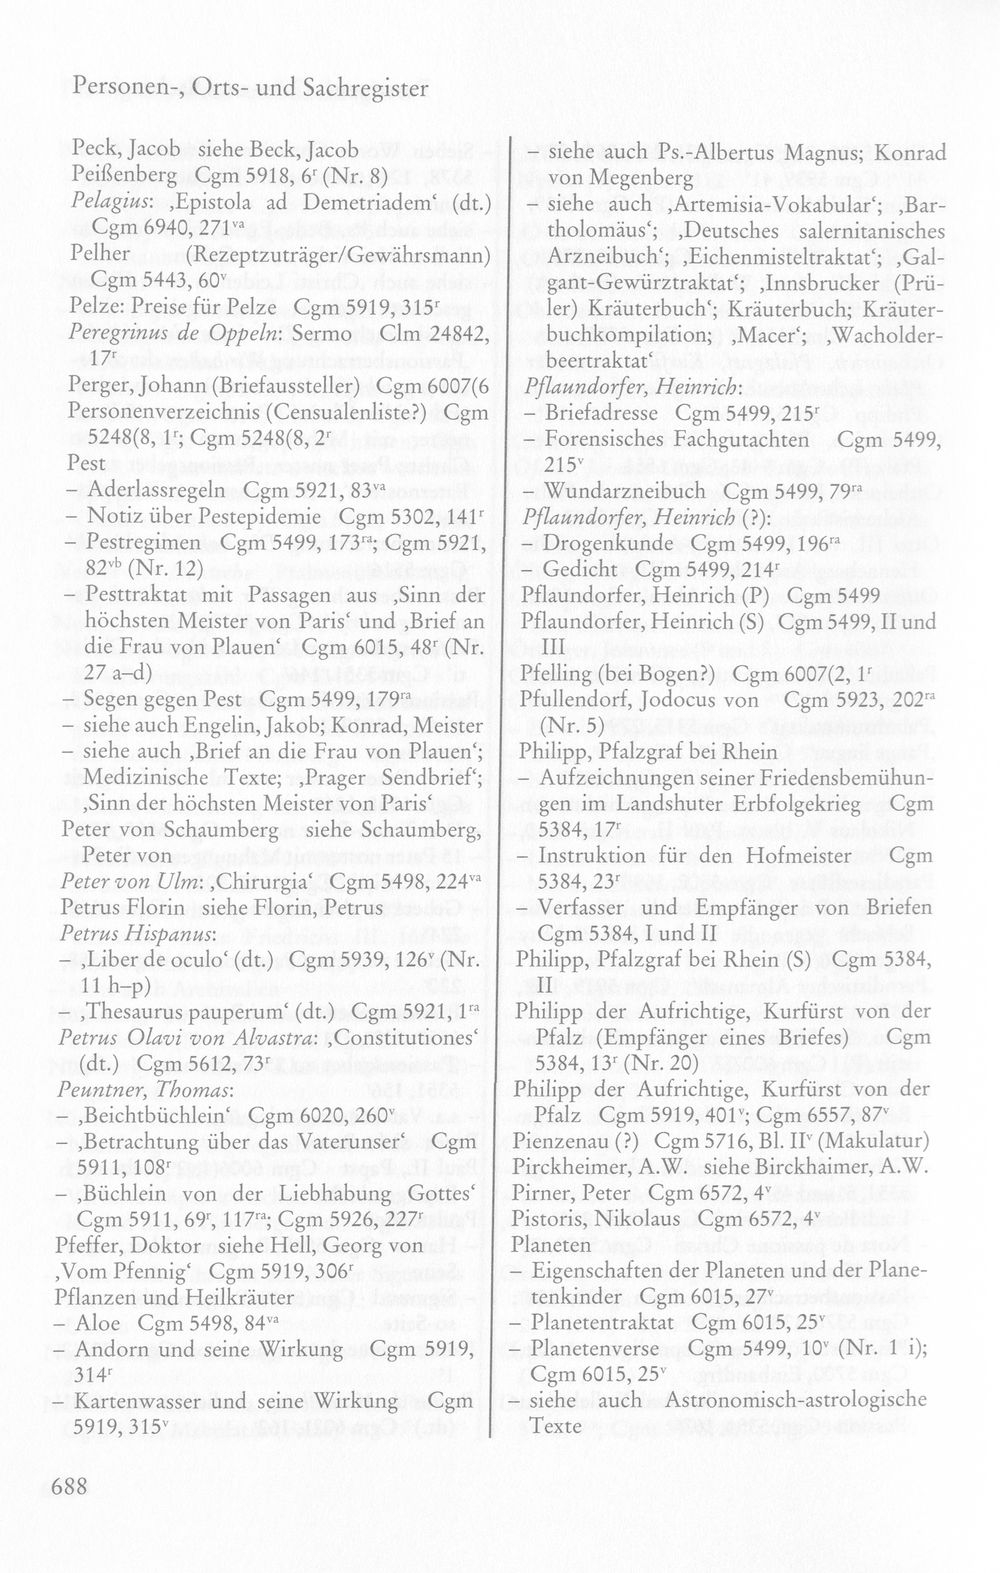 Personen-, Orts- und Sachregister
Peck, Jacob siehe Beck, Jacob
Peißenberg Cgm 5918, 6ʳ (Nr. 8)
Pelagius: ‚Epistola ad Demetriadem‘ (dt.)
Cgm 6940, 271ᵛᵃ
Pelher (Rezeptzuträger/Gewährsmann)
Cgm 5443, 60ᵛ
Pelze: Preise für Pelze Cgm 5919, 315ʳ
Peregrinus de Oppeln: Sermo Clm 24842,
17ʳ
Perger, Johann (Briefaussteller) Cgm 6007(6
Personenverzeichnis (Censualenliste?) Cgm
5248(8, 1ʳ; Cgm 5248(8, 2ʳ
Pest
– Aderlassregeln Cgm 5921, 83ᵛᵃ
– Notiz über Pestepidemie Cgm 5302, 141ʳ
– Pestregimen Cgm 5499, 173ʳᵃ; Cgm 5921,
82ᵛᵇ (Nr. 12)
– Pesttraktat mit Passagen aus ‚Sinn der
höchsten Meister von Paris‘ und ‚Brief an
die Frau von Plauen‘ Cgm 6015, 48ʳ (Nr.
27 a–d)
– Segen gegen Pest Cgm 5499, 179ʳᵃ
– siehe auch Engelin, Jakob; Konrad, Meister
– siehe auch ‚Brief an die Frau von Plauen‘;
Medizinische Texte; ‚Prager Sendbrief‘;
‚Sinn der höchsten Meister von Paris‘
Peter von Schaumberg siehe Schaumberg,
Peter von
Peter von Ulm: ‚Chirurgia‘ Cgm 5498, 224ᵛᵃ
Petrus Florin siehe Florin, Petrus
Petrus Hispanus:
– ‚Liber de oculo‘ (dt.) Cgm 5939, 126ᵛ (Nr.
11 h–p)
– ‚Thesaurus pauperum‘ (dt.) Cgm 5921, 1ʳᵃ
Petrus Olavi von Alvastra: ‚Constitutiones‘
(dt.) Cgm 5612, 73ʳ
Peuntner, Thomas:
– ‚Beichtbüchlein‘ Cgm 6020, 260ᵛ
– ‚Betrachtung über das Vaterunser‘ Cgm
5911, 108ʳ
– ‚Büchlein von der Liebhabung Gottes‘
Cgm 5911, 69ʳ, 117ʳᵃ; Cgm 5926, 227ʳ
Pfeffer, Doktor siehe Hell, Georg von
‚Vom Pfennig‘ Cgm 5919, 306ʳ
Pflanzen und Heilkräuter
– Aloe Cgm 5498, 84ᵛᵃ
– Andorn und seine Wirkung Cgm 5919,
314ʳ
– Kartenwasser und seine Wirkung Cgm
5919, 315ᵛ
– siehe auch Ps.-Albertus Magnus; Konrad
von Megenberg
– siehe auch ‚Artemisia-Vokabular‘; ‚Bar-
tholomäus‘; ‚Deutsches salernitanisches
Arzneibuch‘; ‚Eichenmisteltraktat‘; ‚Gal-
gant-Gewürztraktat‘; ‚Innsbrucker (Prü-
ler) Kräuterbuch‘; Kräuterbuch; Kräuter-
buchkompilation; ‚Macer‘; ‚Wacholder-
beertraktat‘
Pflaundorfer, Heinrich:
– Briefadresse Cgm 5499, 215ʳ
– Forensisches Fachgutachten Cgm 5499,
215ᵛ
– Wundarzneibuch Cgm 5499, 79ʳᵃ
Pflaundorfer, Heinrich (?):
– Drogenkunde Cgm 5499, 196ʳᵃ
– Gedicht Cgm 5499, 214ʳ
Pflaundorfer, Heinrich (P) Cgm 5499
Pflaundorfer, Heinrich (S) Cgm 5499, II und
III
Pfelling (bei Bogen?) Cgm 6007(2, 1ʳ
Pfullendorf, Jodocus von Cgm 5923, 202ʳᵃ
(Nr. 5)
Philipp, Pfalzgraf bei Rhein
– Aufzeichnungen seiner Friedensbemühun-
gen im Landshuter Erbfolgekrieg Cgm
5384, 17ʳ
– Instruktion für den Hofmeister Cgm
5384, 23ʳ
– Verfasser und Empfänger von Briefen
Cgm 5384, I und II
Philipp, Pfalzgraf bei Rhein (S) Cgm 5384,
II
Philipp der Aufrichtige, Kurfürst von der
Pfalz (Empfänger eines Briefes) Cgm
5384, 13ʳ (Nr. 20)
Philipp der Aufrichtige, Kurfürst von der
Pfalz Cgm 5919, 401ᵛ; Cgm 6557, 87ᵛ
Pienzenau (?) Cgm 5716, Bl. IIᵛ (Makulatur)
Pirckheimer, A.W. siehe Birckhaimer, A.W.
Pirner, Peter Cgm 6572, 4ᵛ
Pistoris, Nikolaus Cgm 6572, 4ᵛ
Planeten
– Eigenschaften der Planeten und der Plane-
tenkinder Cgm 6015, 27ᵛ
– Planetentraktat Cgm 6015, 25ᵛ
– Planetenverse Cgm 5499, 10ᵛ (Nr. 1 i);
Cgm 6015, 25ᵛ
– siehe auch Astronomisch-astrologische
Texte
688